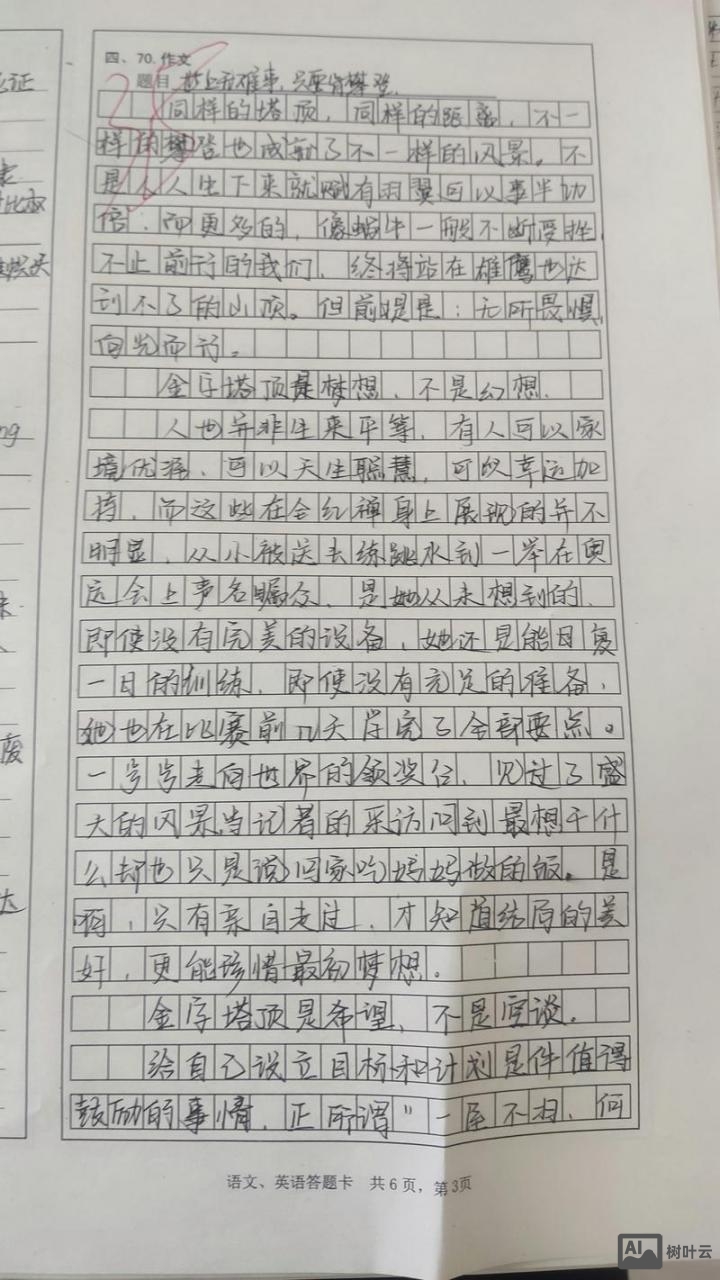 四、70.作文
题目 世上无难事,只要肯攀登
同样的塔顶,同样的距离,不一
样的攀登也成就了不一样的风景。不
是人人生下来就赋有羽翼可以事半功
倍,而更多的,像蜗牛一般不断受挫,
不止前行的我们,终将站在雄鹰也达
到不了的山顶。但前提是:无所畏惧,
向光而行。
金字塔顶是梦想,不是幻想。
人也并非生来平等,有人可以家
境优渥,可以天生聪慧,可以幸运加
持,而这些在全红禅身上展现的并不
明显,从小被送去练跳水到一举在奥
运会上声名瞩众,是她从未想到的,
即使没有完美的设备,她还是能日复
一日的训练,即使没有充足的准备,
她也在比赛前几天背完了全部要点。
一步步走向世界的领奖台,见过了盛
大的风景,当记者的采访问到最想干什
么却也只是说回家吃妈妈做的饭。是
啊,只有亲自走过,才知道结局的美
好,更能珍惜最初梦想。
金字塔顶是希望,不是空谈。
给自己设立目标和计划是件值得
鼓励的事情,正所谓"一屋不扫,何
语文、英语答题卡 共6页,第3页
AI 树叶云